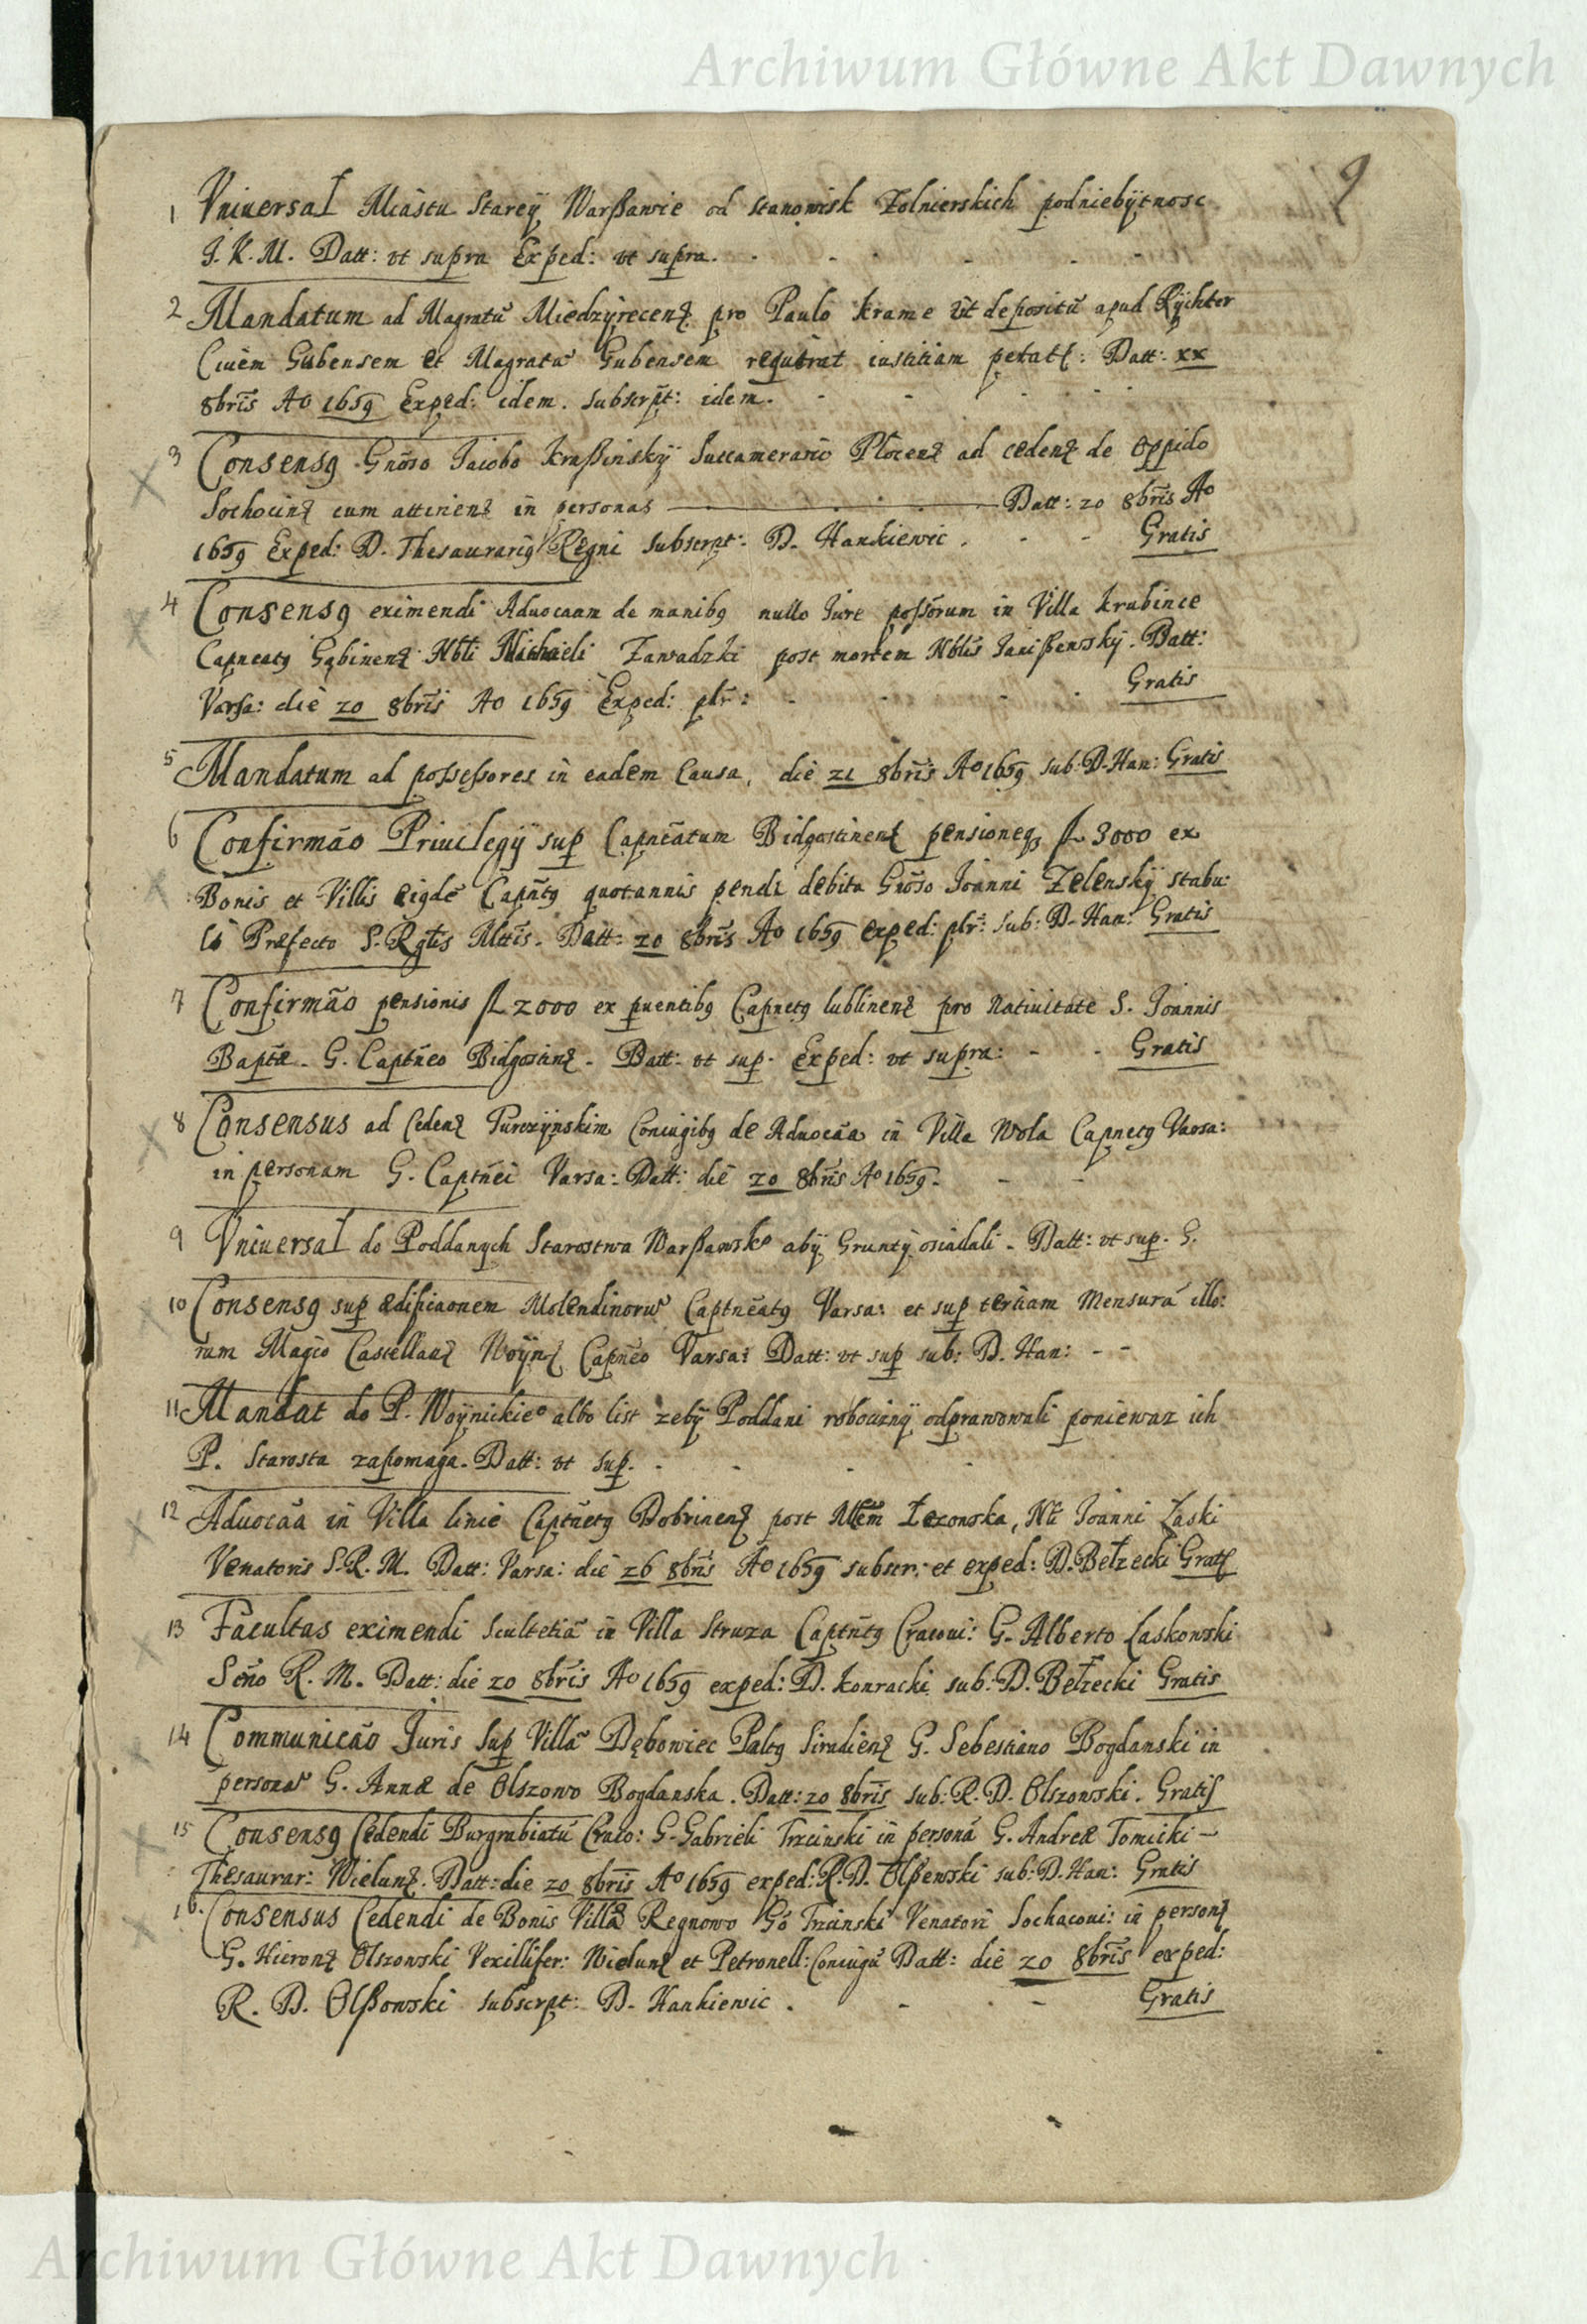 Archiwum Główne Akt Dawnych
9
1 Vniuersal Miástu Starey Warßawie od stanowisk Zolnierskich podniebytnosc
J. K. M. Datt: vt supra Exped: vt supra.
2 Mandatum ad Magratũ Miedzyrecenʒ pro Paulo krame vt depositũ apud Rychter
Ciuem Gubensem et Magratũ Gubensem requirat iustitiam petat: Datt: xx
8bris Ao 1659 Exped: idem. subscrpt: idem.
3 Consensꝯ Gnõso Jacobo Kraßinsky Succamerario Plocenʒ ad cedenʒ de Oppido
Sochocinʒ cum attinenʒ in personas Datt: 20 8bris Ao
1659 Exped: D. Thesaurariꝯ Regni subscrpt: D. Hankiewic. Gratis
4 Consensꝯ eximendi Aduocaam de manibꝯ nullo Jure possorum in Villa krubince
Capneatꝯ Gąbinenʒ Nbli Michaeli Zawadzki post mortem Nblis Janißewsky. Datt:
Varsa: die 20 8bris Ao 1659 Exped: plr: Gratis
5 Mandatum ad possessores in eadem Causa, die 21 8bris Ao 1659 sub: D. Han: Gratis
6 Confirmão Priuilegÿ sup Capneãtum Bidgostinenʒ pensioneqꝫ fl 3000 ex
Bonis et Villis eiꝯdẽ Capntꝯ quotannis pendi debita Gnõso Joanni Zelensky stabu:
li Præfecto S. Rgiis Mttis. Datt: 20 8bris Ao 1659 exped: plr: sub: D. Han: Gratis
7 Confirmão pensionis fl 2000 ex puentibꝯ Capnetꝯ lublinenʒ pro Natiuitate S. Joannis
Baptæ. G. Captneo Bidgostinʒ. Datt: vt sup. Exped: vt supra: Gratis
8 Consensus ad Cedenʒ Purczynskim Coniugibꝯ de Aduocãa in Villa Wola Capnetꝯ Varsa:
in personam G. Captnei Varsa: Datt: die 20 8bris Ao 1659.
9 Vniuersal do Poddanych Starostwa Warßawsko aby Grunty osiadali. Datt: vt sup. G.
10 Consensꝯ sup ædificaonem Molendinorũ Captneatꝯ Varsa: et sup tertiam Mensurã illo:
rum Magco Castellanʒ Woynʒ Capneo Varsa: Datt: vt sup sub: D. Han:
11 Mandat do P. Woynickieo albo list zeby Poddani robocizny odprawowali poniewaz ich
P. Starosta zapomaga. Datt: vt sup.
12 Aduocãa in Villa linie Captnetꝯ Dobrinenʒ post Joanni Łaski
Venatoris S. R. M. Datt: Varsa: die 26 8bris Ao 1659 subscr: et exped: D. Bełzecki Grat
13 Facultas eximendi Scultetiã in Villa Struza Captntꝯ Cracoui: G. Alberto Laskowski
R. M. Datt: die 20 8bris Ao 1659 exped: D. konracki sub: D. Bełzecki Gratis
14 Communicão Juris Sup Villã Dębowiec Paltꝯ Siradienʒ G. Sebestiano Bogdanski in
personã G. Annæ de Olszowo Bogdanska. Datt: 20 8bris sub: R. D. Olszowski. Gratis
15 Consensꝯ Cedendi Burgrabiatũ Craco: G. Gabrieli Trzcinski in personã G. Andreæ Tomicki
Thesaurar: Wielunʒ. Datt: die 20 8bris Ao 1659 exped: R. D. Olßewski sub: D. Han: Gratis
16. Consensus Cedendi de Bonis Villæ Regnowo Gõ Trzinski Venatori Sochacoui: in personʒ
G. Hieronʒ Olszowski Vexillifer: Wielunʒ et Petronell: Coniugũ Datt: die 20 8bris exped:
R. D. Olßowski subscrpt: D. Hankiewic. Gratis
Archiwum Główne Akt Dawnych